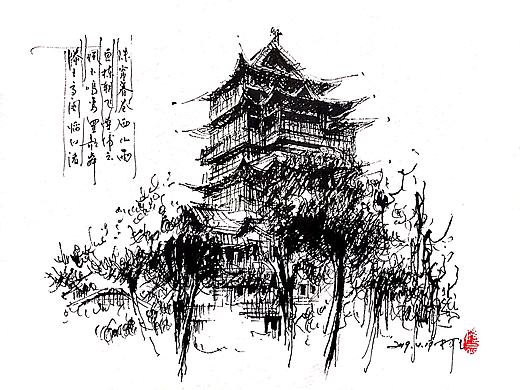 滕王高阁临江渚
佩玉鸣鸾罢歌舞
画栋朝飞南浦云
珠帘暮卷西山雨